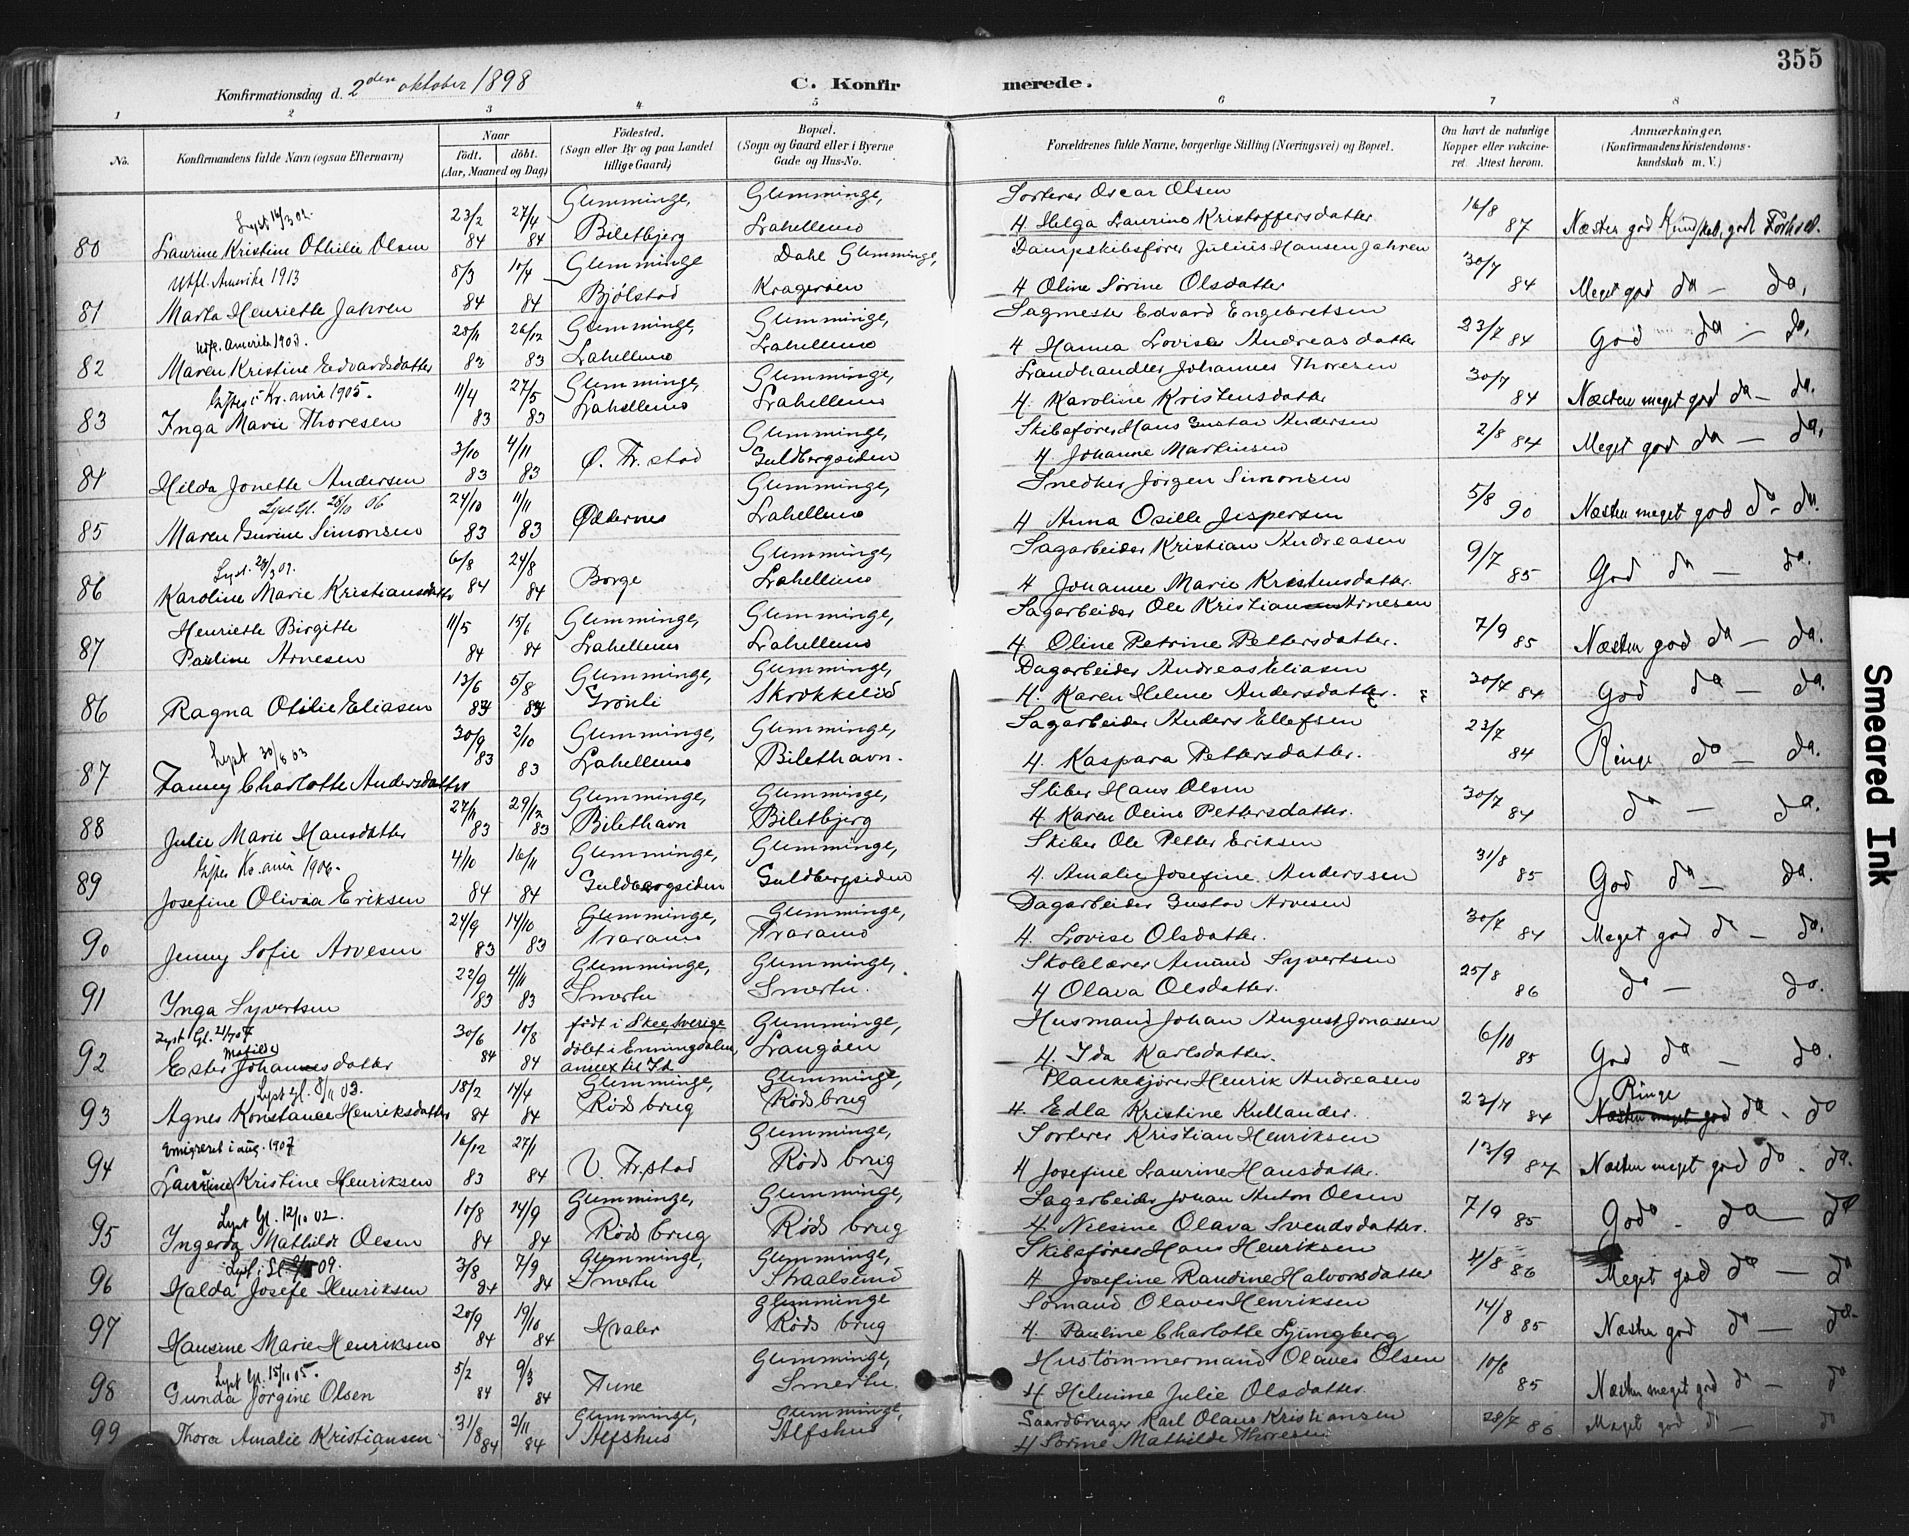 355
Konfirmationsdag d. 2den oktober 1898
C. Konfirmerede.
1 2 3 4 5 6 7 8
No.
Konfirmandens fulde Navn (ogsaa Efternavn)
Naar
født. døbt.
(Aar, Maaned og Dag)
Fødested.
(Sogn eller By og paa Landet
tillige Gaard)
Bopæl.
(Sogn og Gaard eller i Byerne
Gade og Hus-No.
Forældrenes fulde Navne, borgerlige Stilling (Næringsvei) og Bopæl.
Om havt de naturlige
Kopper eller vakcine-
ret. Attest herom.
Anmærkninger.
(Konfirmandens Kristendoms-
kundskab m. V.)
Lyst 16/3 02. 23/2 27/4 Glemminge, Glemminge, Sorterer Oscar Olsen 16/8
80 Laurine Kristine Othilie Olsen 84 84 Biletbjerg Lahellemo 4 Helga Laurine Kristoffersdatter 87 Næsten god Kundskab, godt Forhold.
Utfl. Amerika 1913 8/3 10/4 Glemminge Dahl Glemminge, Dampskibsfører Julius Hansen Jahren 30/7
81 Marta Henriette Jahren 84 84 Bjølstad Kragerøen 4 Oline Sørine Olsdatter 84 Meget god do — do,
Utfl. Amerika 1903. 28/11 26/12 Glemminge, Glemminge, Sagmester Edvard Engebretsen 23/7
82 Maren Kristine Edvardsdatter 83 83 Lahellemo Lahellemo 4 Hanna Lovise Andreasdatter 84 God do — do,
Giftes i Kr.ania 1905. 11/4 27/5 Glemminge, Glemminge, Landhandler Johannes Thoresen 30/7
83 Inga Marie Thoresen 83 83 Lahellemo Lahellemo 4. Karoline Kristensdatter 84 Næsten meget god do — do.
3/10 4/11 Glemminge, Skibsfører Hans Gustav Andersen 2/8
84 Hilda Jonette Andersen 83 83 Ø. Fr.stad Guldbergsiden 4. Johanne Martinsen 84 Meget god do — do,
Lyst Gl. 28/10 06 24/10 11/11 Glemminge, Snedker Jørgen Simonsen 5/8
85 Maren Gurine Simonsen 83 83 Øddernes Lahellemo 4 Anna Osille Jespersen 90 Næsten meget god do - do.
Lyst. 6/8 24/8 Glemminge, Sagarbeider Kristian Andreasen 9/7
86 Karoline Marie Kristiansdatter 84 84 Borge Lahellemo 4 Johanne Marie Kristensdatter. 85 God do — do.
Henriette Birgitte 11/5 15/6 Glemminge, Glemminge, Sagarbeider Ole Kristian Arnesen 7/9
87 Pauline Arnesen 84 84 Lahellemo Lahellemo 4 Oline Petrine Pettersdatter. 85 Næsten god do — do.
13/6 5/8 Glemminge, Glemminge, Dagarbeider Andreas Eliasen 30/7
86 Ragna Otilie Eliasen 84 84 Grønli Skrokkelid 4. Karen Helene Andersdatter. 84 God do — do.
Lyst 30/6 03 30/9 2/10 Glemminge, Glemminge, Sagarbeider Anders Ellefsen 23/7
87 Fanny Charlotte Andersdatter 83 83 Lahellemo Bilethavn. 4. Kaspara Pettersdatter. 84 Ringe do — do.
27/11 29/12 Glemminge, Glemminge, Skiber Hans Olsen 30/7
88 Julie Marie Hansdatter 83 83 Bilethavn Biletbjerg 4. Karen Oline Pettersdatter. 84 do — do.
Giftes Kr.ania 1906. 4/10 16/11 Glemminge, Glemminge, Skiber Ole Petter Eriksen 31/8
89 Josefine Olivia Eriksen 84 84 Guldbergsiden Guldbergsiden 4. Amalie Josefine Anderssen 85 God do — do.
24/9 14/10 Glemminge, Glemminge, Dagarbeider Gustav Arvesen 30/7
90 Jenny Sofie Arvesen 83 83 Traramo Traramo 4. Lovise Olsdatter. 84 Meget god do — do.
22/9 4/11 Glemminge, Glemminge, Skolelærer Amund Syvertsen 25/8
91 Inga Syvertsen 83 83 Smertu Smertu. 4 Olava Olsdatter. 86 do — do.
Lyst Gl. 21/7 07 30/6 10/8 født i Skee Sverige Glemminge, Husmand Johan August Jonassen 6/10
92 Ester Matilde Johannesdatter 84 84 døbt i Enningdalen, annex til Id. Langøen 4. Ida Karlsdatter. 85 God do — do.
Lyst Gl. 8/11 03. 18/2 14/4 Glemminge, Glemminge, Plankekjører Henrik Andreasen 23/7 Ringe
93 Agnes Konstance Henriksdatter 84 84 Røds brug Røds brug 4. Edla Kristine Kullander. 84 Næsten meget god do - do
Emigreret i aug. 1907 16/12 27/1 Glemminge, Sorterer Kristian Henriksen 13/9
94 Laurine Kristine Henriksen 83 84 V. Fr.stad Røds brug 4 Josefine Laurine Hansdatter. 84 Næsten meget god do - do.
Lyst Gl. 12/10 02. 10/8 14/9 Glemminge, Glemminge, Sagarbeider Johan Anton Olsen 7/9
95 Ingerda Mathilde Olsen 84 84 Røds brug Røds brug 4. Nilsine Olava Svendsdatter. 85 God. - do — do
Lyst i 09. 3/8 7/9 Glemminge, Glemminge, Skibsfører Hans Henriksen 4/8
96 Halda Josefe Henriksen 84 84 Smertu Straalsund 4 Josefine Randine Halvorsdatter 86 Meget god do — do
20/9 19/10 Glemminge Sømand Olaves Henriksen 14/8
97 Hansine Marie Henriksen 84 84 Hvaler Røds brug 4. Pauline Charlotte Ljungberg 85 Næsten god do — do.
Lyst Gl. 15/10 05. 5/2 9/3 Glemminge, Hustømmermand Olaves Olsen 10/8
98 Gunda Jørgine Olsen 84 84 Tune Smertu. 4 Helmine Julie Olsdatter. 85 Næsten meget god do — do
31/8 2/11 Glemminge, Glemminge, Gaardbruger Karl Olaus Kristiansen 28/7
99 Thora Amalie Kristiansen 84 84 Alfshus Alfshus 4 Sørine Mathilde Thoresen 86 Meget god do — do
Smeared Ink